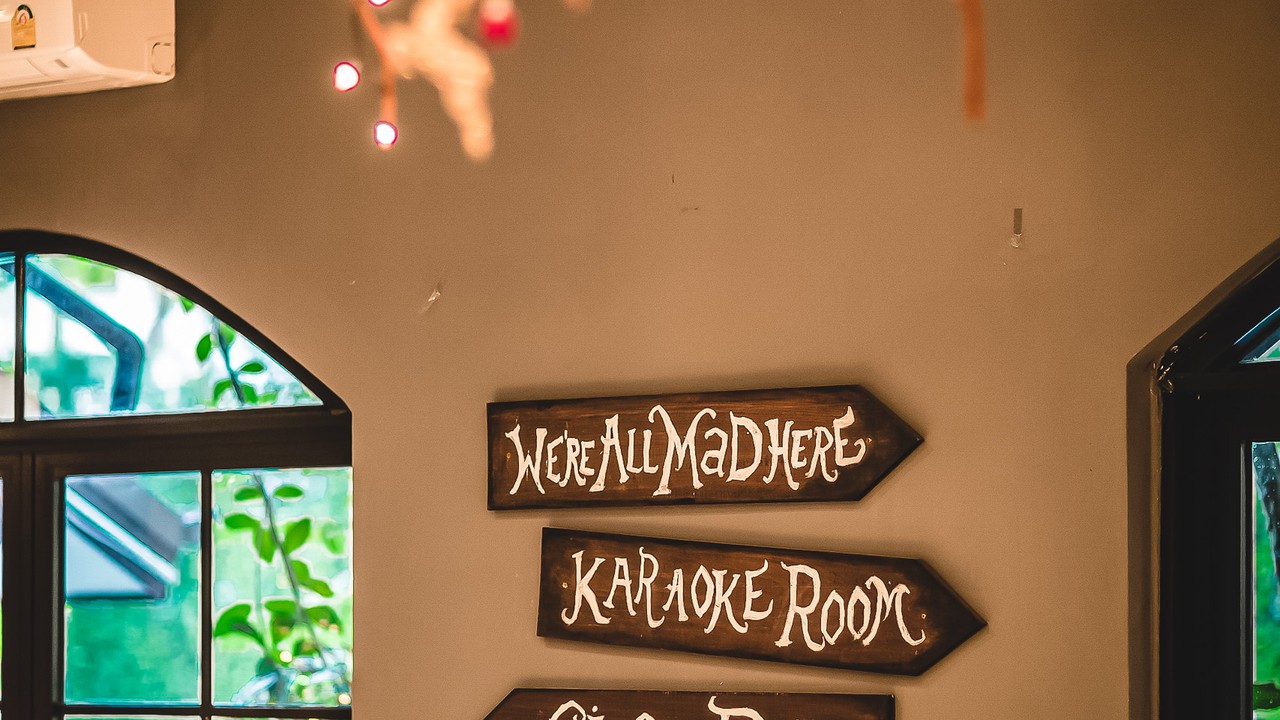 WE'RE ALL MaD HERE
KARAOKE ROOM